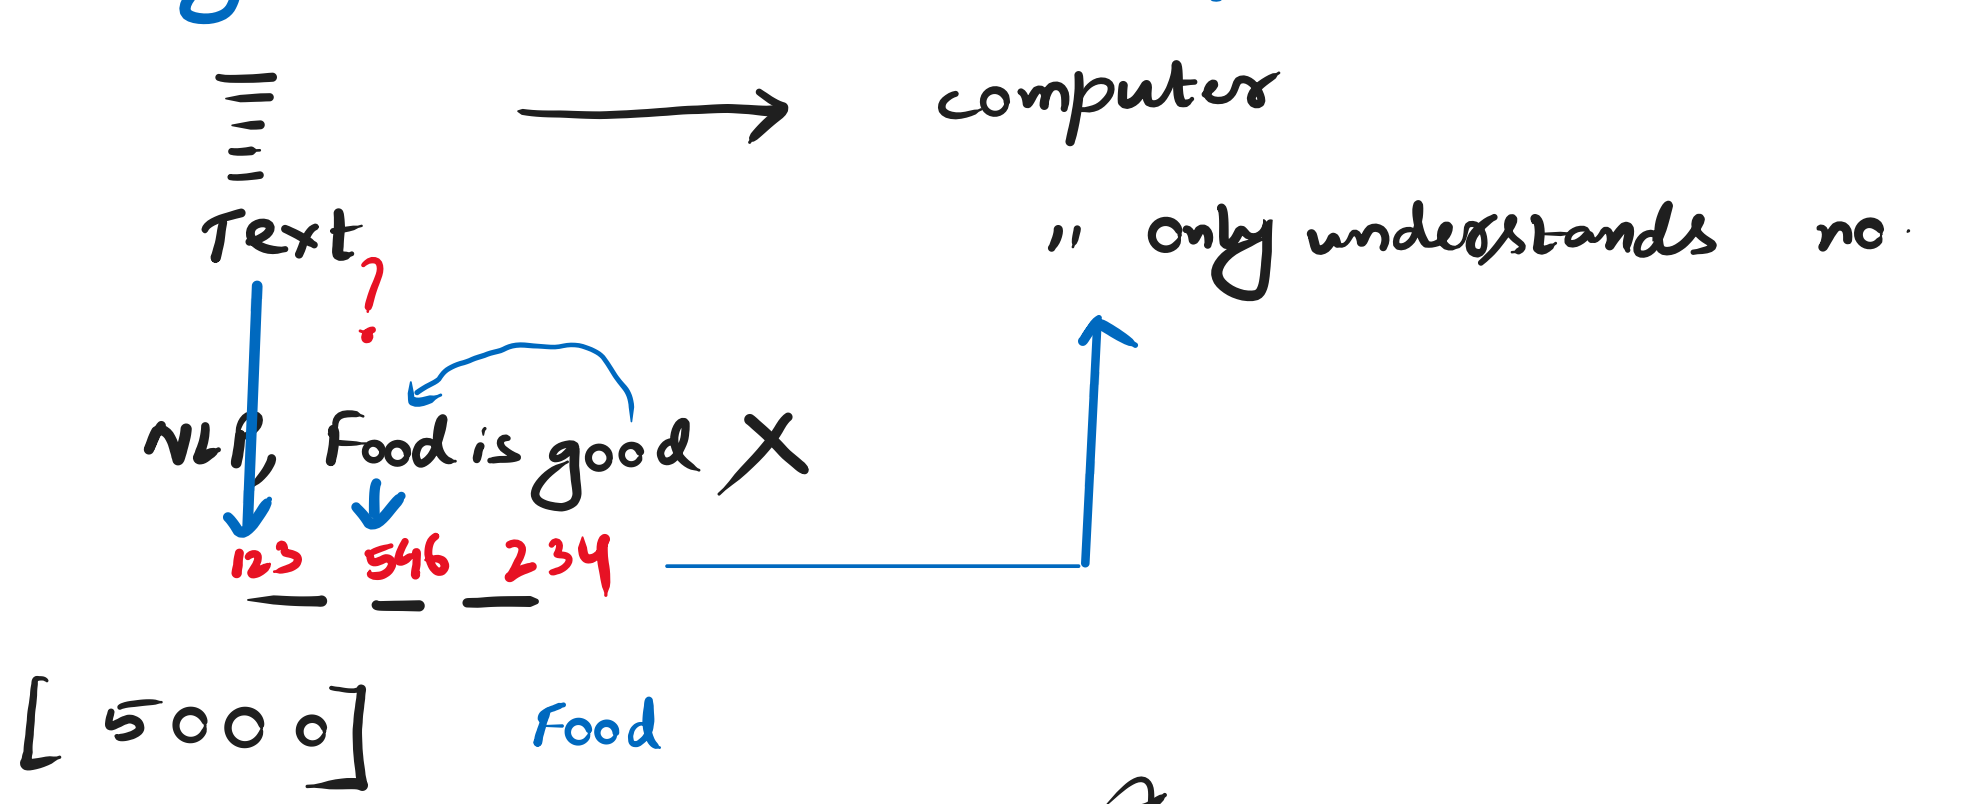 computer
Text
" only understands no.
?
NLP, Food is good X
123 546 234
[ 5000 ] Food